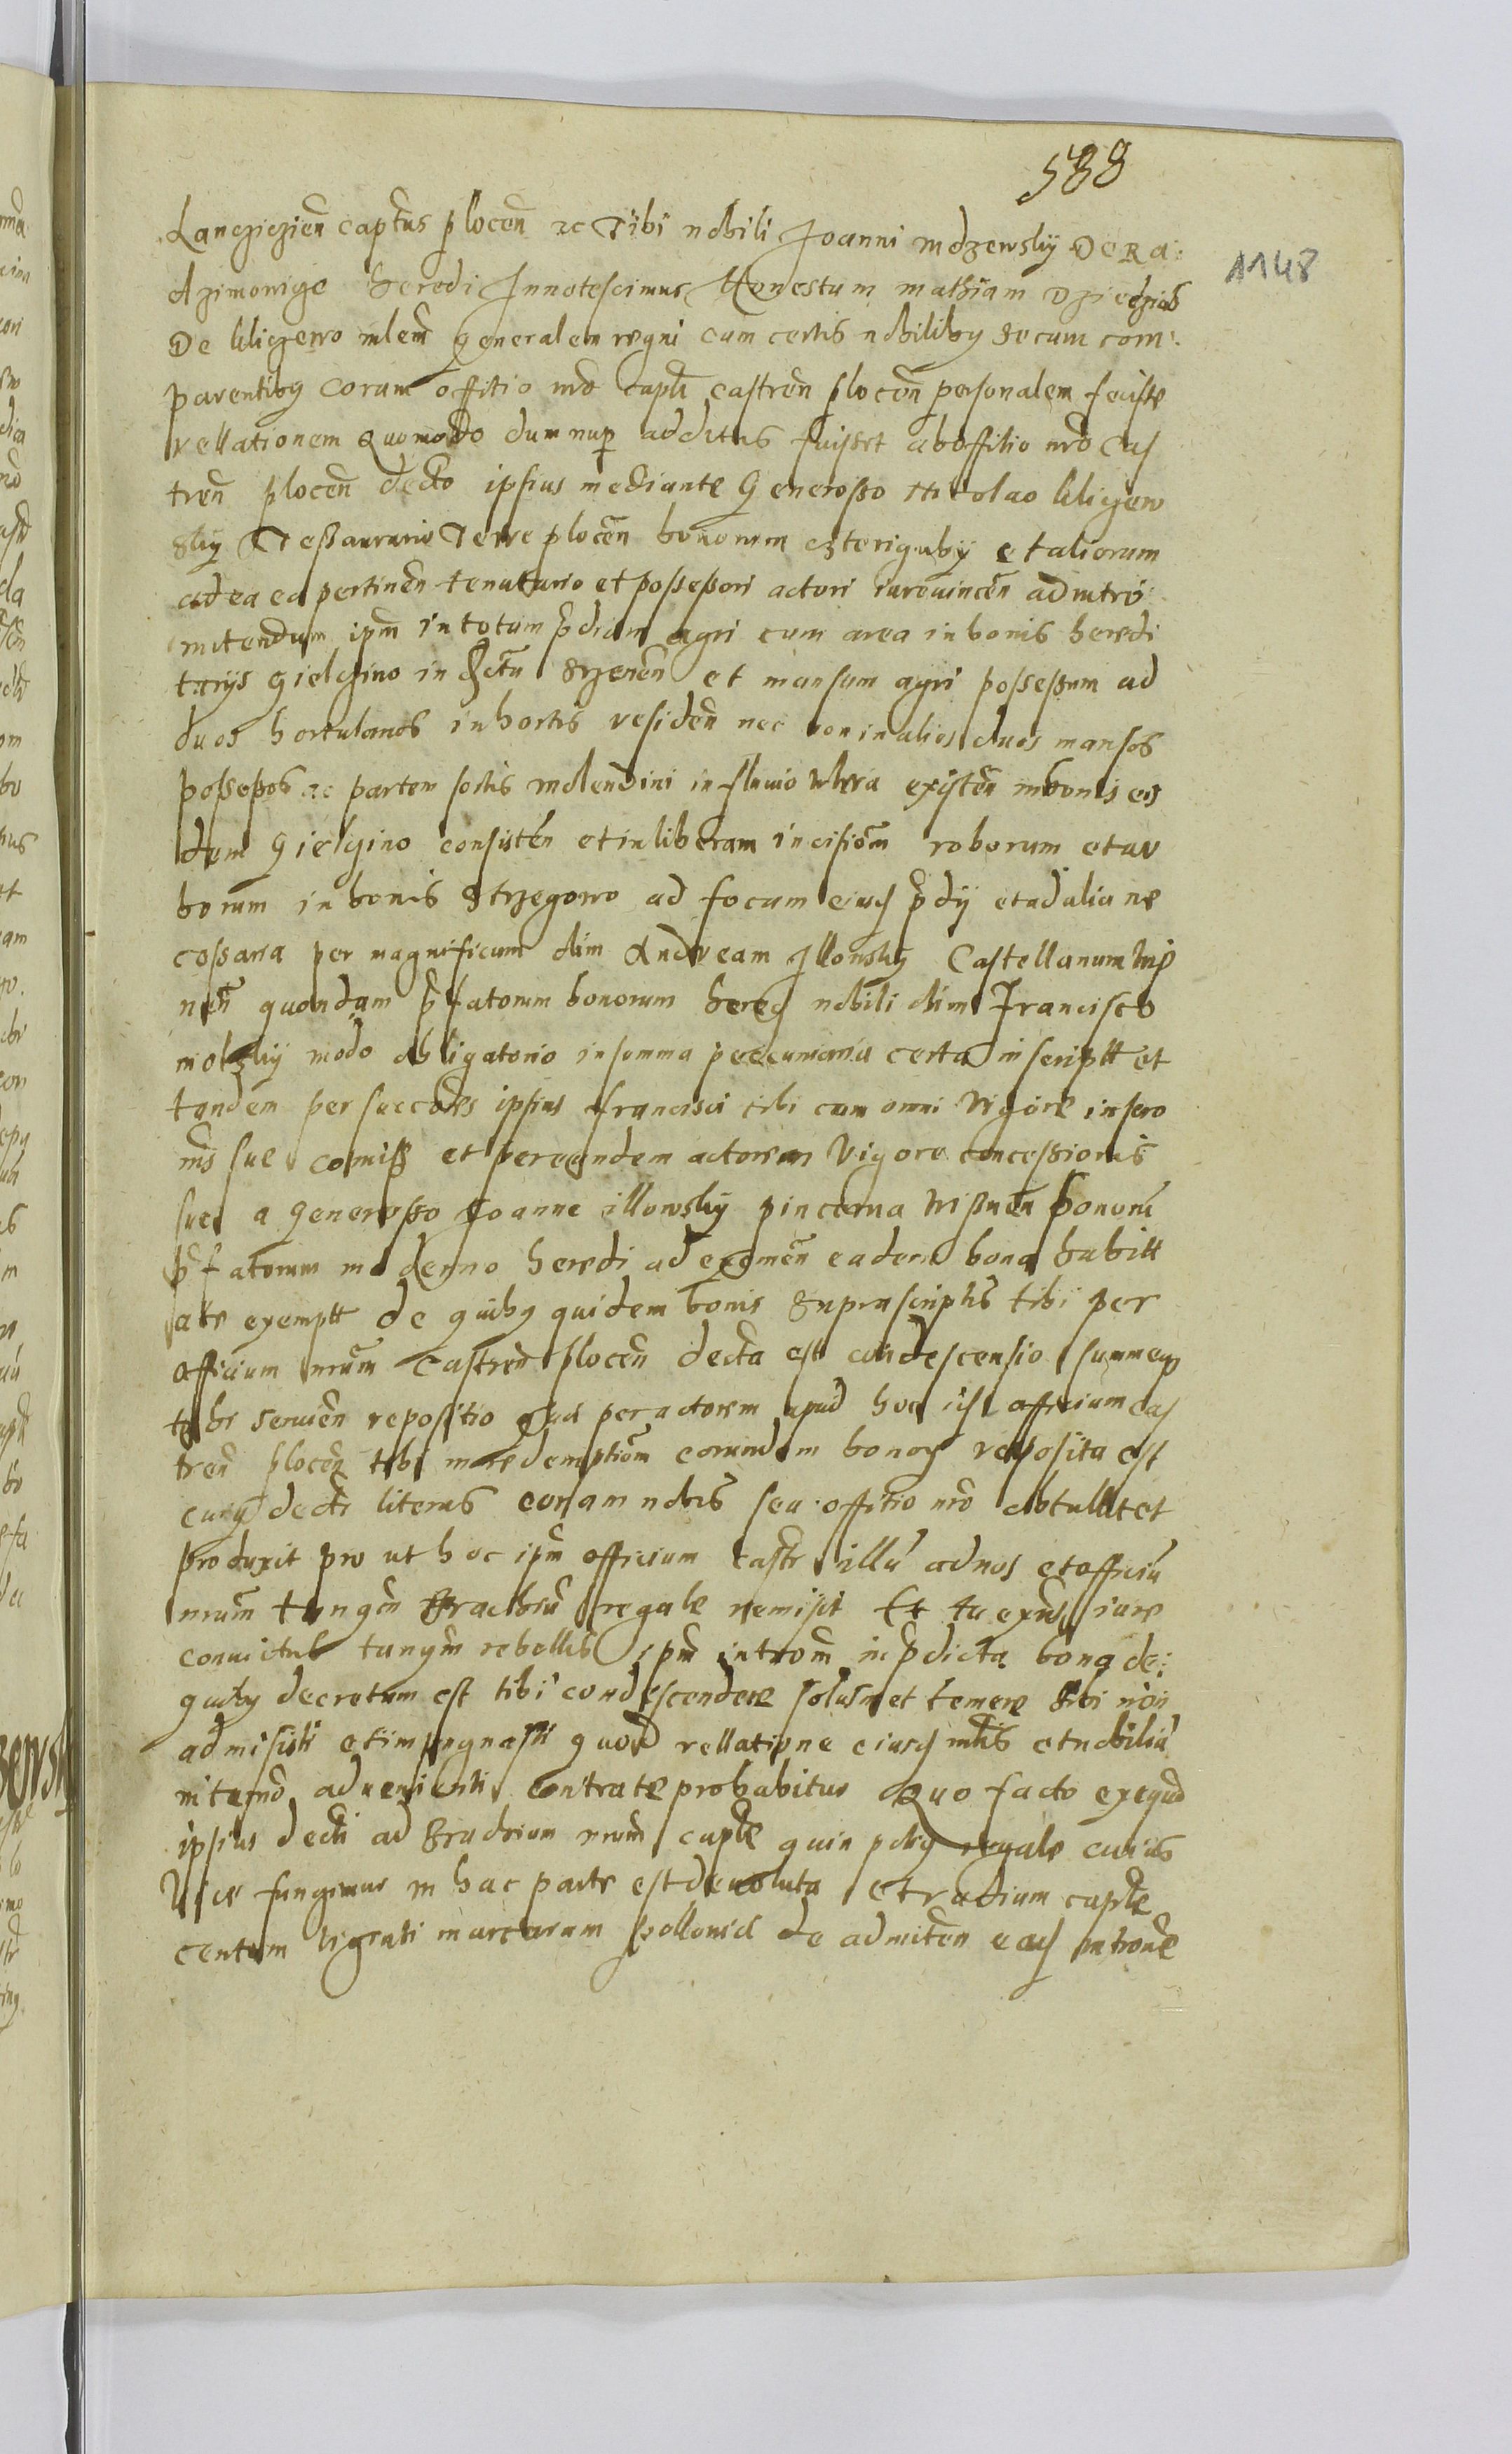 588
1148
Lancziczień capt̃us plocen̄ ac Tibi nobili Joanni mdzewskÿ De Ra:
dzimowige heredi Innotescimus Honestum mathiam
De kliczewo generalem regni cum certis nobilibꝫ secum com:
parentibꝫ coram offitio nr̄o capti castren̄ plocen̄ personalem fecisse
rellationem Quomodo dum nup additus fuisset ab offitio nr̄o Cas
tren̄ plocen̄ decto ipsius mediante Generosso Nicolao kliczew
skÿ Tessaurario Terre plocen̄ bonorum et aliorum
ad ea pertinen̄ tenutario et possessori actori iurevincen̄ ad intro
mittendum ipm̄ in totum p̄dium agri cum area in bonis heredi
tarÿs gielczino in srzenen̄ et mansum agri possessum ad
duos hortulanos in hortis residen̄ nec non in alios duos mansos
possessos ac partem sortis molendini in fluvio Wkra existen̄ in bonis eis
dem gielczino consisten̄ et in liberam incisiōm roborum et ar
borum in bonis Strzegowo ad focum eiusd p̄dÿ et ad alia ne
cossaria per magnificum olim Andream Illowskÿ Castellanum Wis
nen̄ quondam p̄fatorum bonorum hered nobili olim Francisco
modo obligatorio in summa peccuniaria certa inscriptt et
tandem per succōres ipsius francisci tibi cum omni vigore inscro
nis sue comiss et per eundem actorem vigore concessionis
sue a Generosso Joanne illowskÿ pincerna Wissnen̄ bonorum
p̄fatorum moderno heredi ad eximen̄ eadem bona habitt
ate exemptt de quibꝫ quidem bonis suprascriptis tibi per
officium nrūm Castren̄ plocen̄ decta est condescensio summeqꝫ
tibi servien̄ repositio que per actorem apud hoc ist officium cas
tren̄ plocen̄ tibi in redemptiōm eorundem bonorꝫ reposita est
cuius decti literas coram nobis seu offitio nr̄o obtullit et
produxit pro ut hoc ipm̄ officium castr illū ad nos et officiū
nrūm tanqm̄ bracchiū regale remisit Et tu exn̄s iure
convictus tanqm̄ rebellis ipm̄ introm̄ in p̄dicta bona de:
quibꝫ decretum est tibi condescendere solusmet temere sibi non
admisisti et impugnasti quod rellatione eiusd mlis et nobiliū
in termō advenienti contra te probabitur Quo facto exequō
ipsius decti ad bradium nrūm captle quin potiꝫ regale cuius
Vice fungimur in hac parte est devoluta et radium captle
centum viginti marcarum pollonicl de admiten̄ easd introne